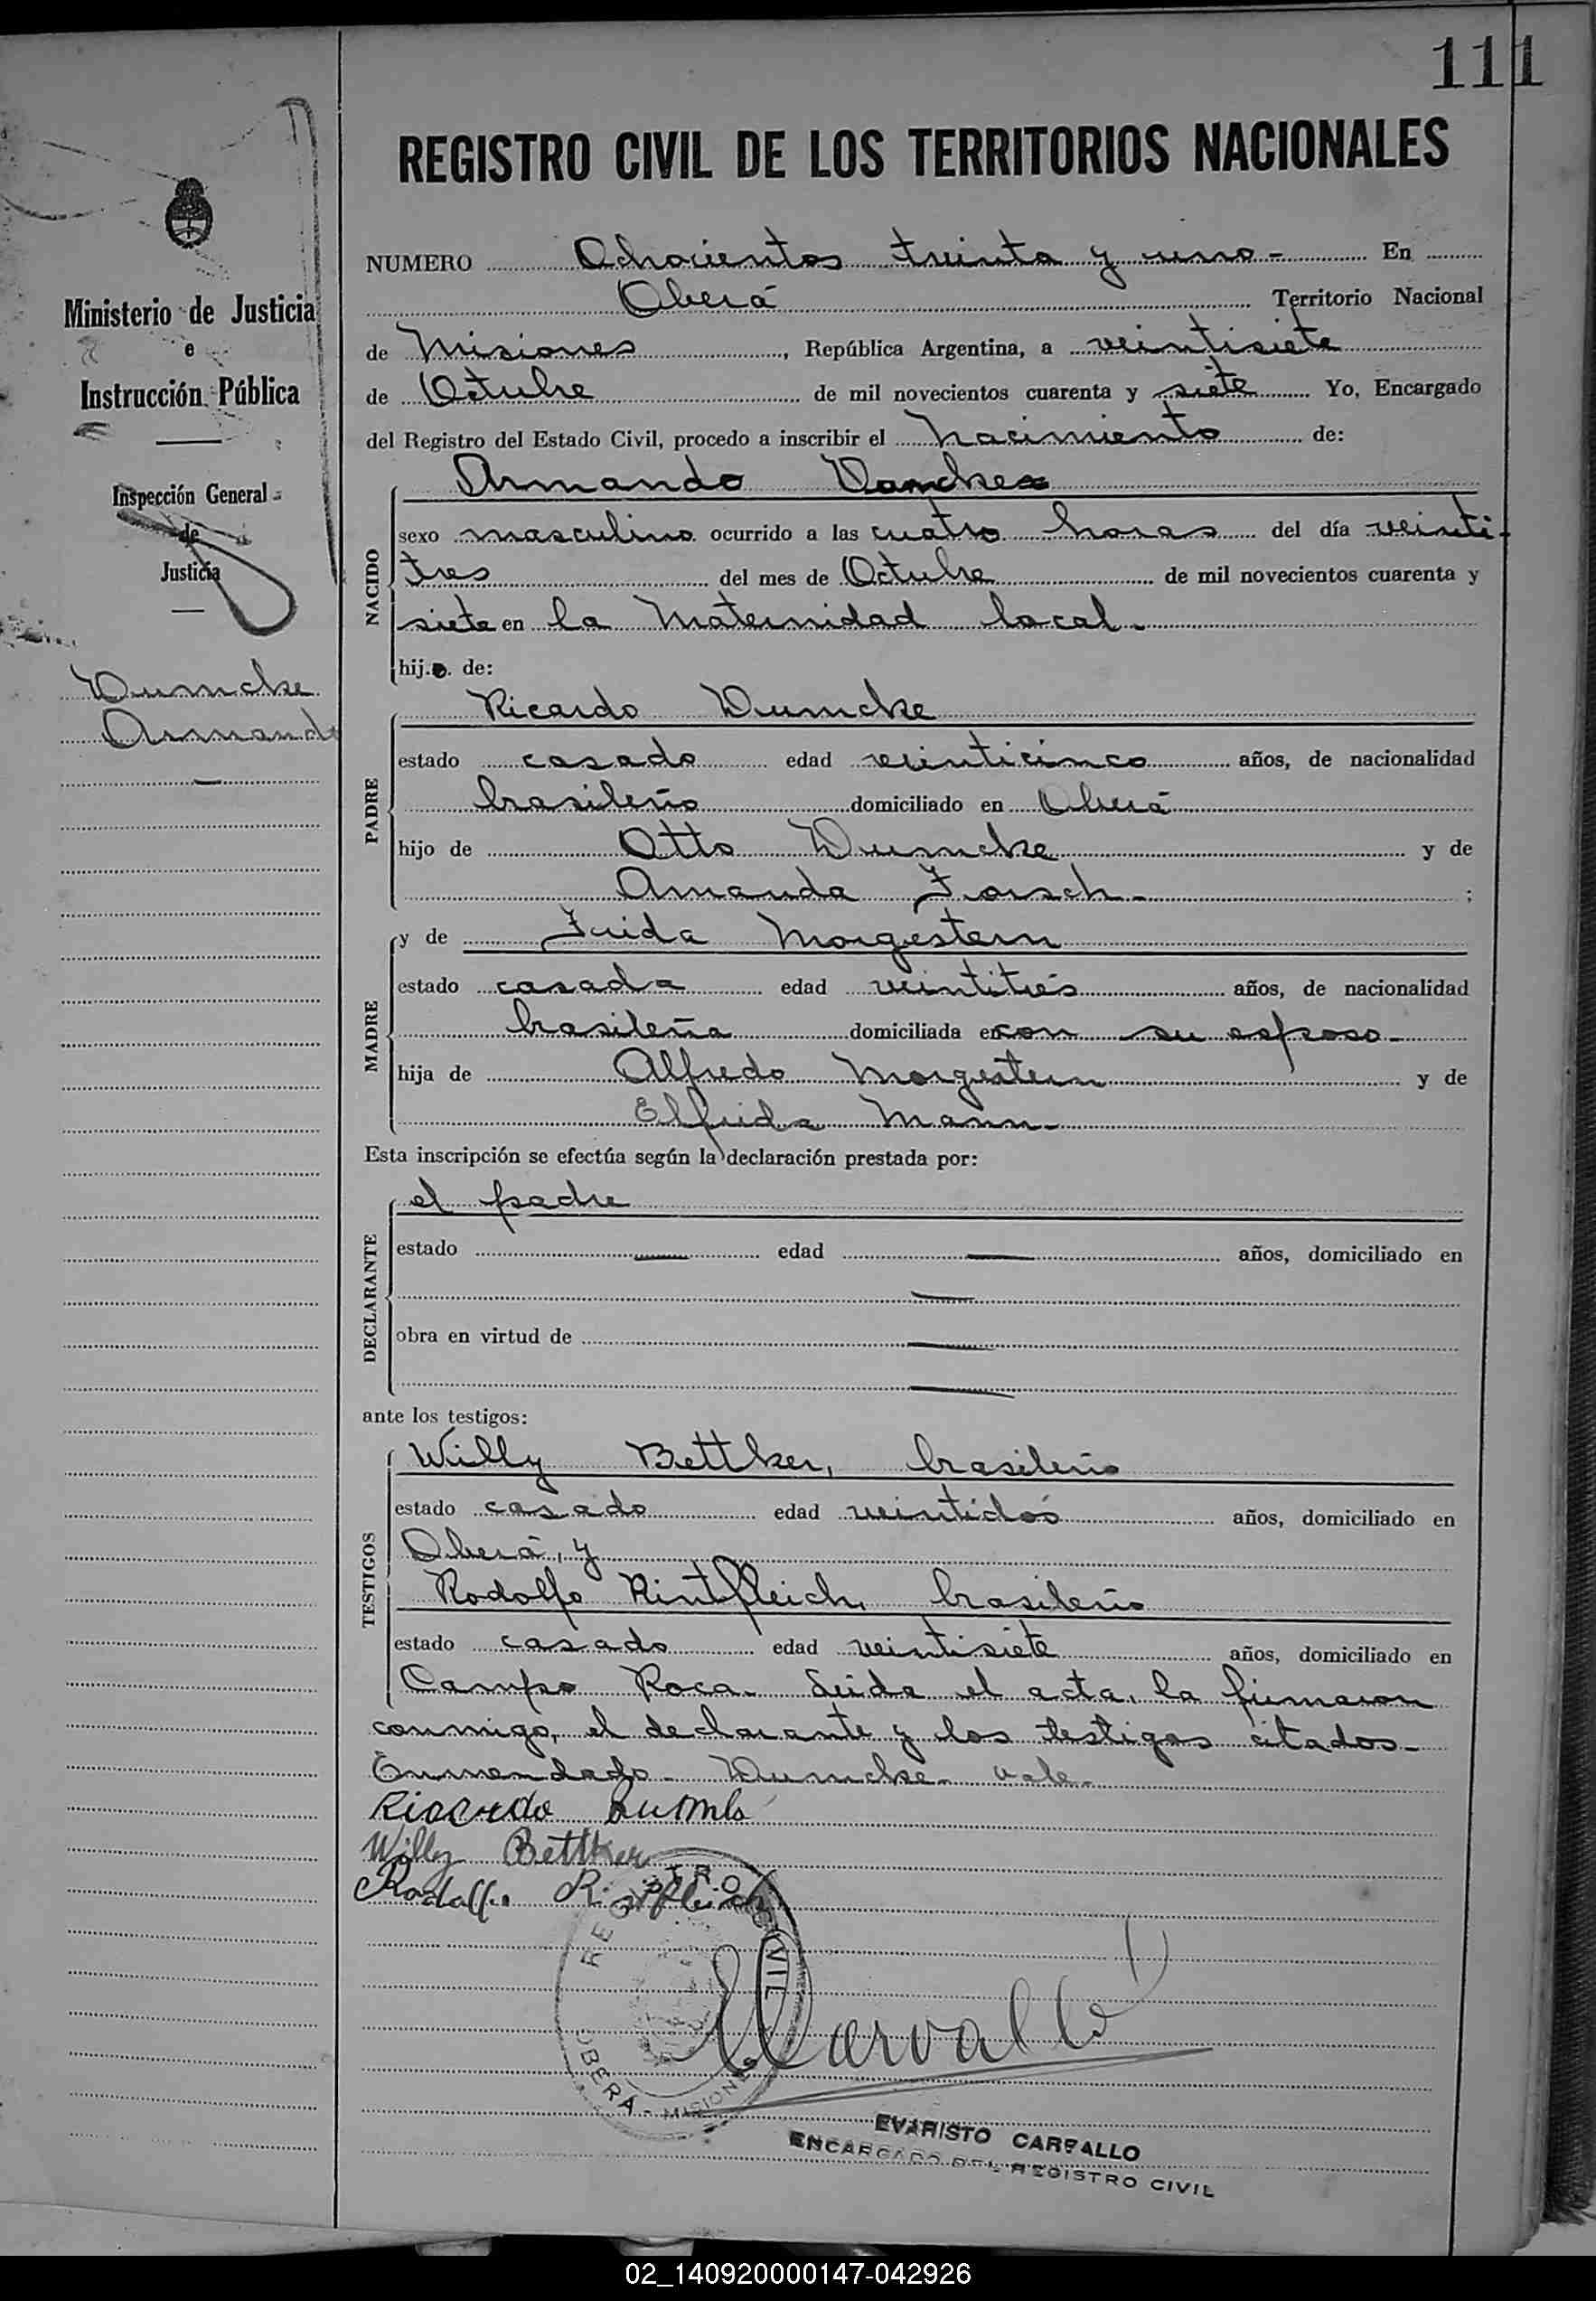 111
REGISTRO CIVIL DE LOS TERRITORIOS NACIONALES
Ministerio de Justicia
e
Instrucción Pública
Inspección General
de
Justicia
Dumcke
Armando
NUMERO Ochocientos treinta y uno - En
Oberá Territorio Nacional
de Misiones, República Argentina, a veintisiete
de Octubre de mil novecientos cuarenta y siete Yo, Encargado
del Registro del Estado Civil, procedo a inscribir el nacimiento de:
NACIDO
Armando
sexo masculino ocurrido a las cuatro horas del día veinti-
tres del mes de Octubre de mil novecientos cuarenta y
siete en la Maternidad local.
hijo de:
PADRE
Ricardo Dumcke
estado casado edad veinticinco años, de nacionalidad
brasileño domiciliado en Oberá
hijo de Otto Dumcke y de
Amanda Forsch - ;
MADRE
y de Frida Morgestern
estado casada edad veintitrés años, de nacionalidad
brasileña domiciliada en con su esposo -
hija de Alfredo Morgestern y de
Elfrida Mann -
Esta inscripción se efectúa según la declaración prestada por:
DECLARANTE
el padre
estado — edad — años, domiciliado en
—
obra en virtud de —
—
ante los testigos:
TESTIGOS
Willy Bettker, brasileño
estado casado edad veintidós años, domiciliado en
Oberá, y
Rodolfo Rintfleich, brasileño
estado casado edad veintisiete años, domiciliado en
Campo Roca. Leída el acta, la firmaron
conmigo, el declarante y los testigos citados -
Enmendado - Dumcke - vale -
Ricardo
Willy Bettker
Rodolfo Rintfleich
REGISTRO CIVIL
OBERÁ - MISIONES
Carvallo
EVARISTO CARVALLO
ENCARGADO DEL REGISTRO CIVIL
02_140920000147-042926